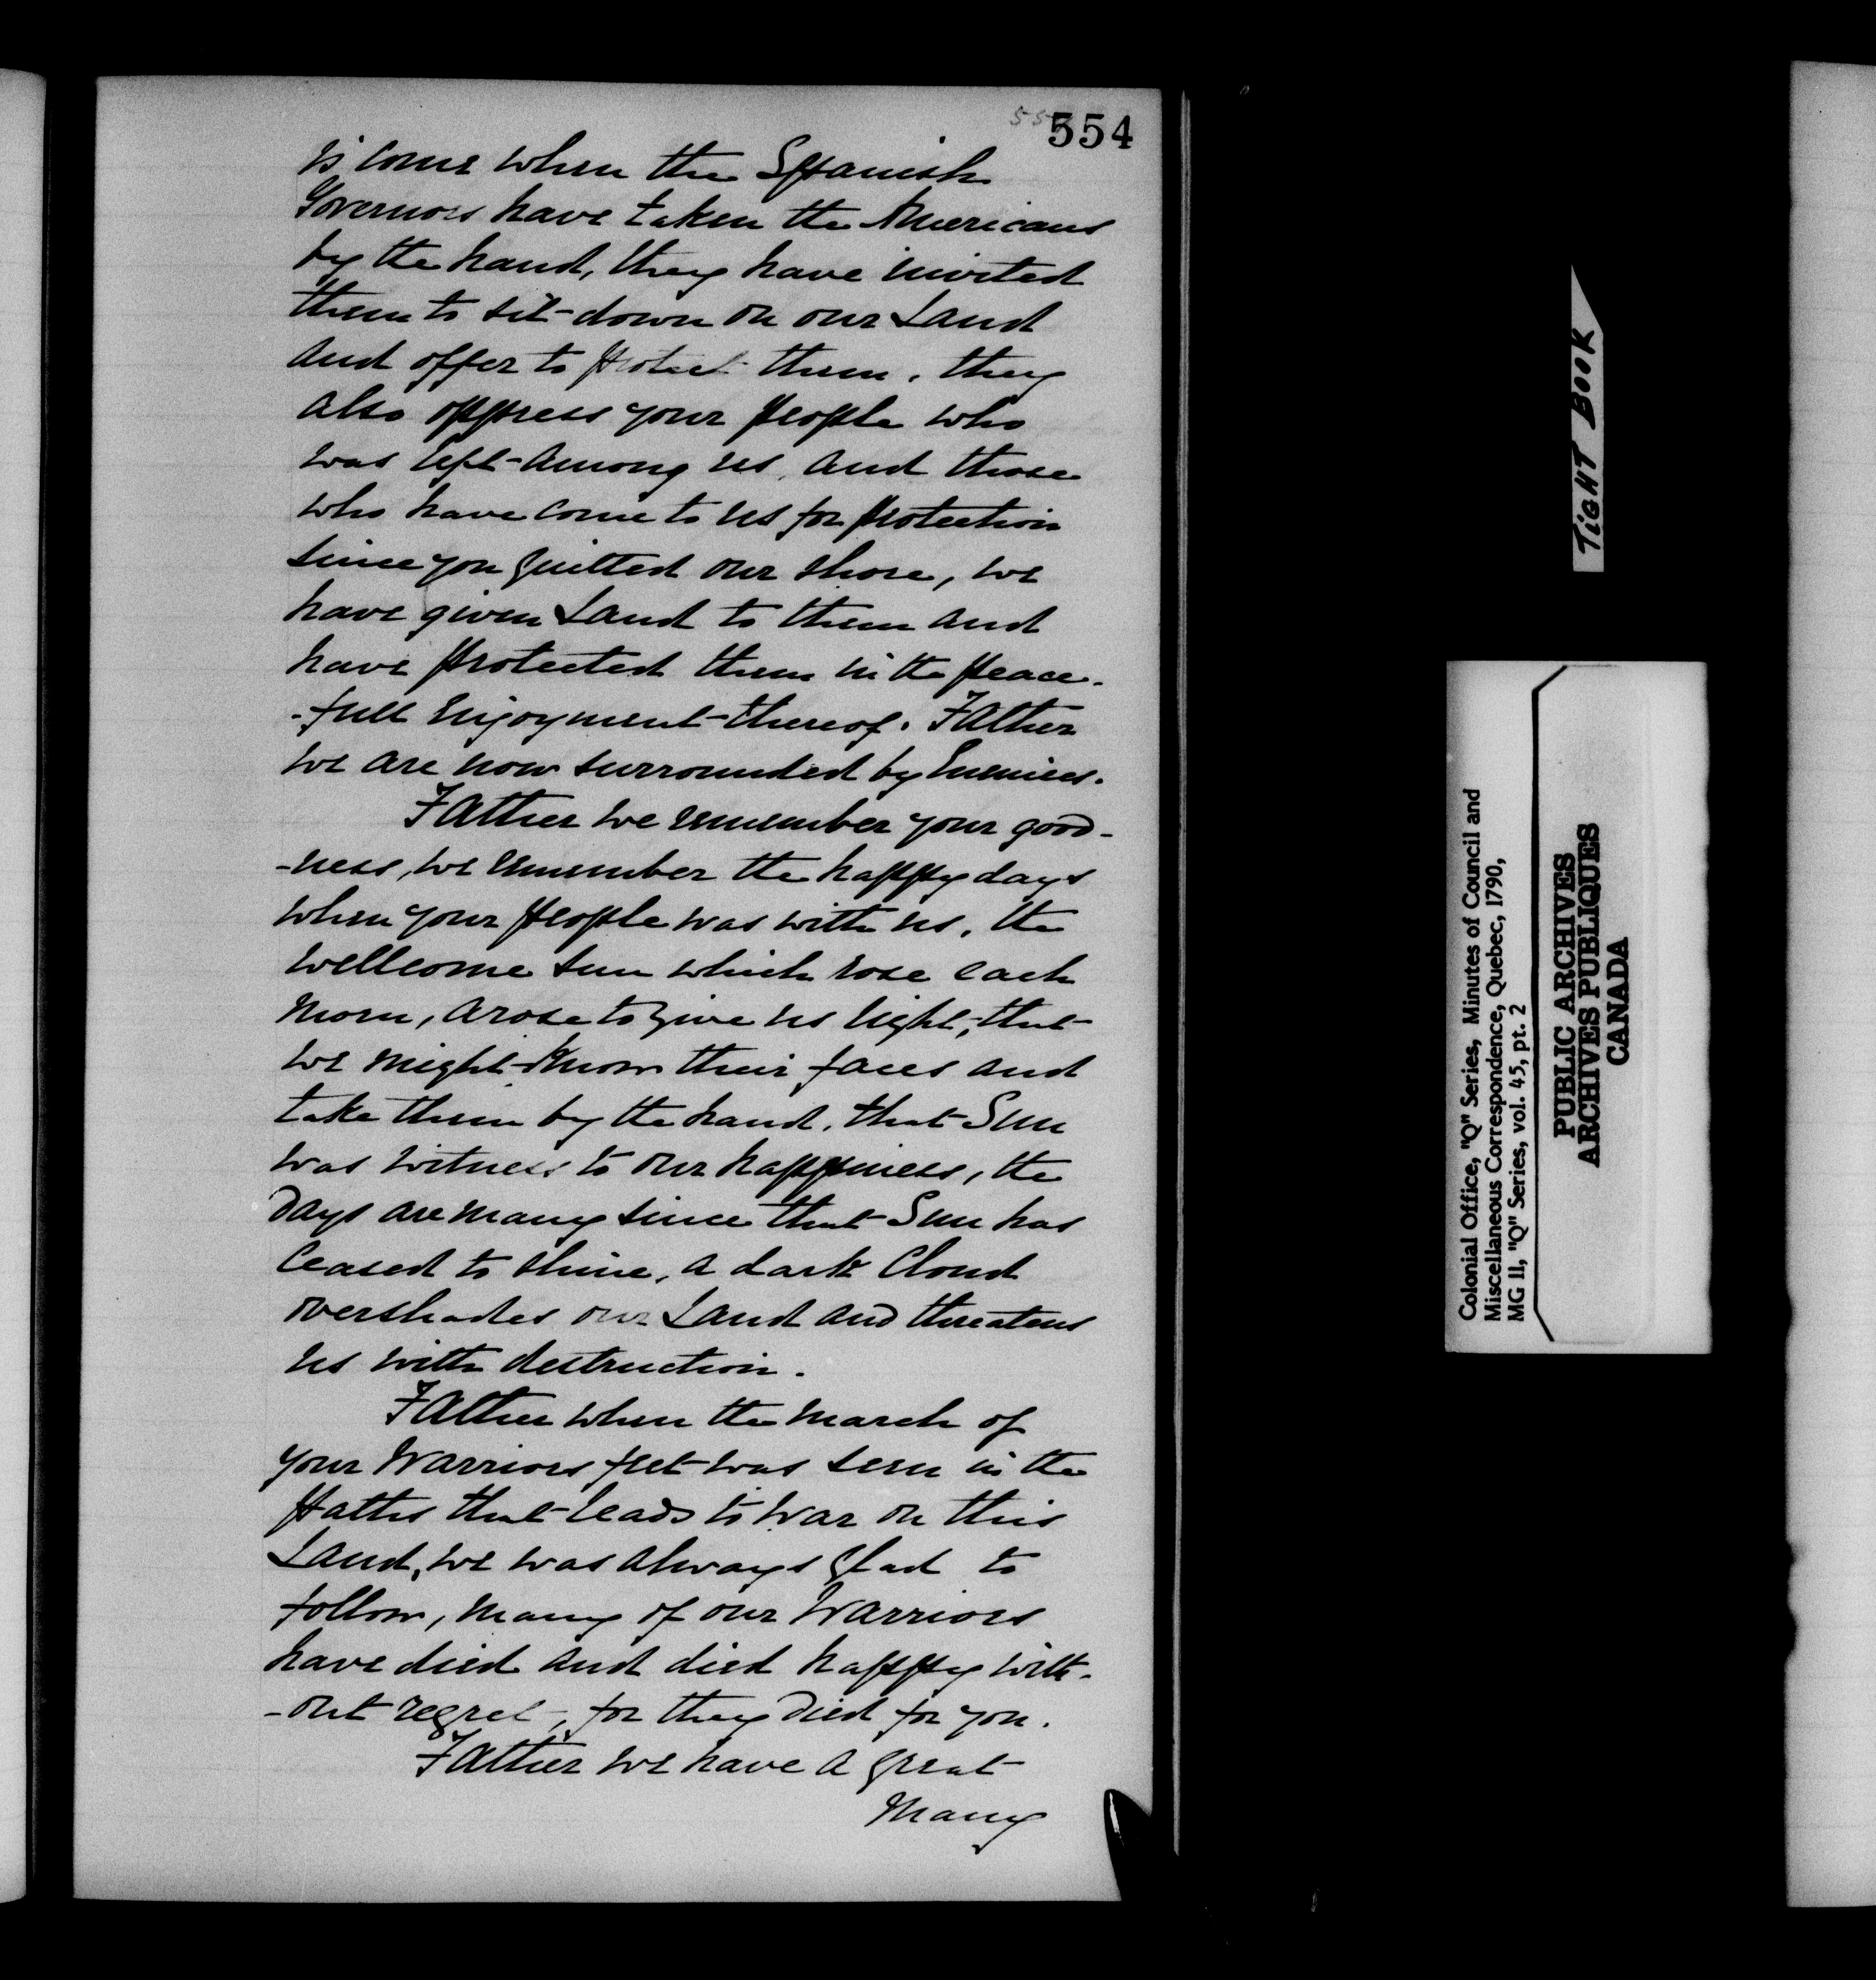 554
is come when the Spanish
Governors have taken the Americans
by the hand, they have invited
them to sit down on our Land
and offer to protect them, they
also oppress your people who
was left among us, and those
who have come to us for protection
since you quitted our shore, we
have given Land to them and
have protected them in the peace-
-full enjoyment thereof. Father
we are now surrounded by Enemies.
Father we remember your good-
-ness, we remember the happy days
when your people was with us, the
wellcome sun which rose each
morn, arose to give us light, that
we might know their faces and
take them by the hand, that Sun
was witness to our happiness, the
days are many since that Sun has
ceased to shine, a dark Cloud
overshades our Land and threatens
us with destruction.
Father when the march of
your Warriors feet was seen in the
paths that leads to War on this
Land, we was always glad to
follow, many of our Warriors
have died and died happy with-
-out regret, for they died for you.
Father we have a great
many
TIGHT BOOK
Colonial Office, "Q" Series, Minutes of Council and
Miscellaneous Correspondence, Quebec, 1790,
MG 11, "Q" Series, vol. 45, pt. 2
PUBLIC ARCHIVES
ARCHIVES PUBLIQUES
CANADA